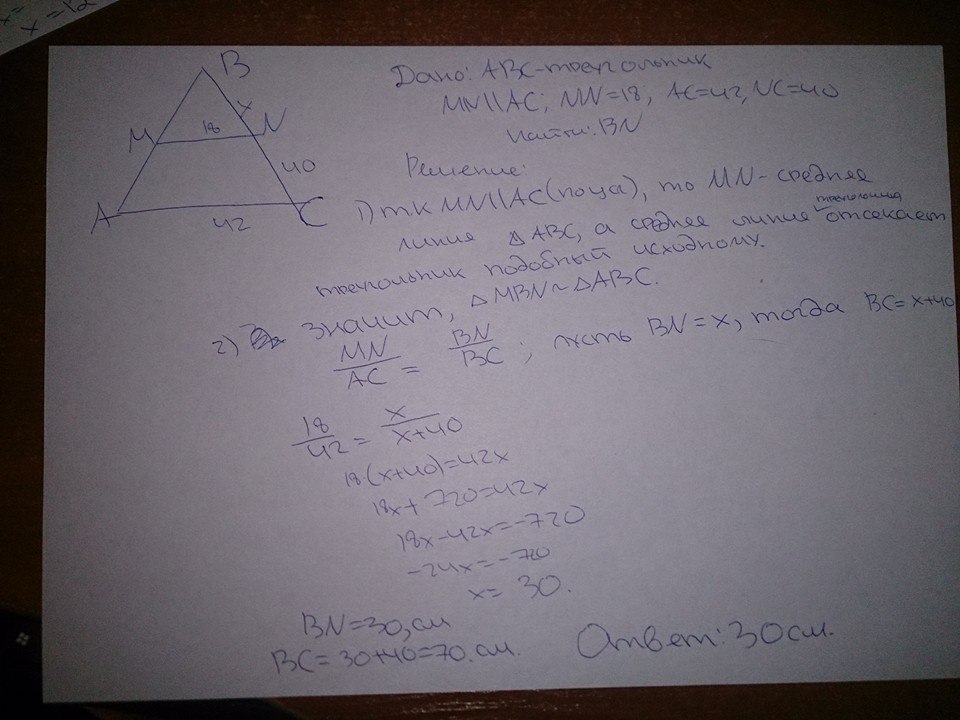 x=
x=12
B
x
M
18
N
40
A
42
C
Дано: ABC-треугольник
MN||AC; MN=18, AC=42, NC=40
Найти: BN
Решение:
1) тк MN||AC(по усл), то MN-среднее
линия △ABC, а среднее линия треугольника отсекает
треугольник подобный исходному.
2) Значит, △MBN~△ABC.
MN/AC = BN/BC; пусть BN=x, тогда BC=x+40
18/42 = x/x+40
18(x+40)=42x
18x+720=42x
18x-42x=-720
-24x=-720
x= 30.
BN=30,см
BC=30+40=70.см.
Ответ: 30см.